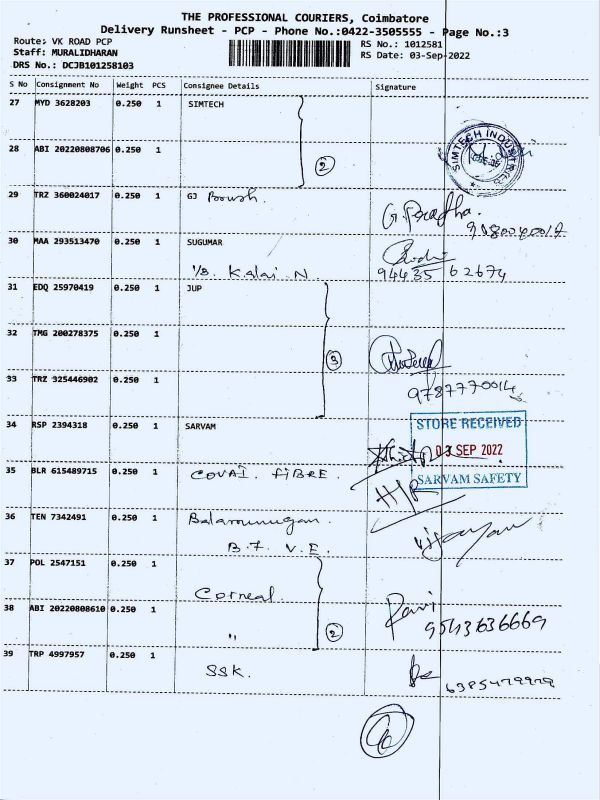 THE PROFESSIONAL COURIERS, Coimbatore
Delivery Runsheet - PCP - Phone No.:0422-3505555 - Page No.:3
Route: VK ROAD PCP
RS No.: 1012581
Staff: MURALIDHARAN
RS Date: 03-Sep-2022
DRS No.: DCJB101258103
S No Consignment No Weight PCS Consignee Details Signature
27 MYD 3628203 0.250 1 SIMTECH
28 ABI 20220808706 0.250 1
2
SIMTECH INDUSTRIES
29 TRZ 360024017 0.250 1 GJ
G. Peratha.
30 MAA 293513470 0.250 1 SUGUMAR
Kalai. N
94435 62674
31 EDQ 25970419 0.250 1 JUP
32 TMG 200278375 0.250 1
3
33 TRZ 325446902 0.250 1
9787770014
34 RSP 2394318 0.250 1 SARVAM
STORE RECEIVED
03 SEP 2022
SARVAM SAFETY
35 BLR 615489715 0.250 1 COVAI. FIBRE.
36 TEN 7342491 0.250 1 Balamurugan.
B. F. V. E.
Vijayan
37 POL 2547151 0.250 1
Corneal.
38 ABI 20220808610 0.250 1 "
2
Ravi
9543636669
39 TRP 4997957 0.250 1 SSK.